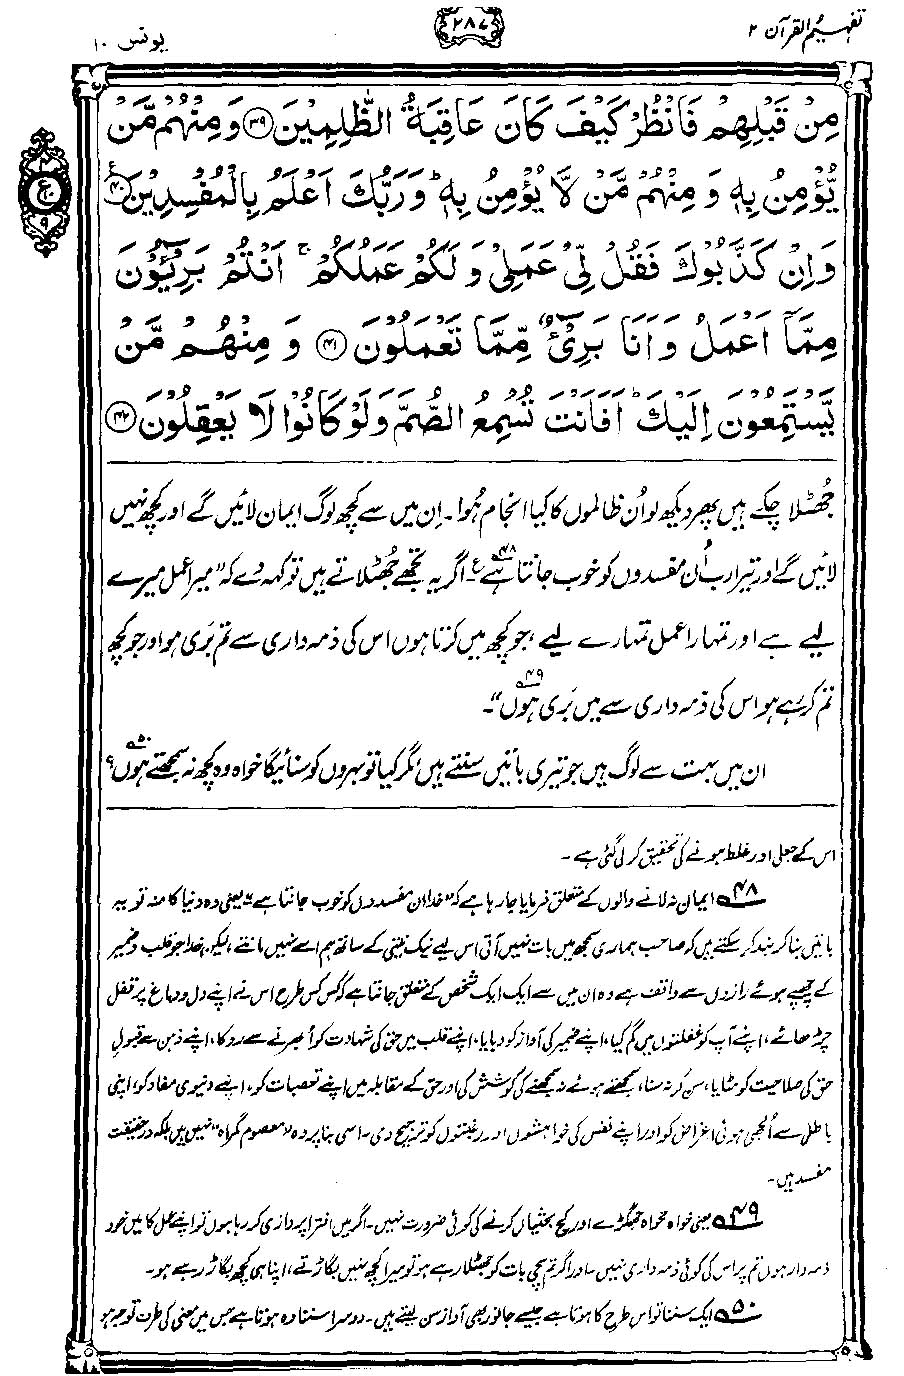 تفہیم القرآن ۲
۲۸۷
یونس ۱۰
مِنْ قَبْلِهِمْ فَانْظُرْ كَيْفَ كَانَ عَاقِبَةُ الظّٰلِمِيْنَ ﴿۳۹﴾ وَمِنْهُمْ مَّنْ
يُّؤْمِنُ بِهٖ وَ مِنْهُمْ مَّنْ لَّا يُؤْمِنُ بِهٖ ؕ وَرَبُّكَ اَعْلَمُ بِالْمُفْسِدِيْنَ ﴿۴۰﴾ ع
وَاِنْ كَذَّبُوْكَ فَقُلْ لِّيْ عَمَلِيْ وَ لَكُمْ عَمَلُكُمْ ۚ اَنْتُمْ بَرِيْٓئُوْنَ
مِمَّاۤ اَعْمَلُ وَ اَنَا بَرِيْٓءٌ مِّمَّا تَعْمَلُوْنَ ﴿۴۱﴾ وَ مِنْهُمْ مَّنْ
يَّسْتَمِعُوْنَ اِلَيْكَ ؕ اَفَاَنْتَ تُسْمِعُ الصُّمَّ وَلَوْ كَانُوْا لَا يَعْقِلُوْنَ ﴿۴۲﴾
ع
۹
جُھٹلا چکے ہیں پھر دیکھ لو اُن ظالموں کا کیا انجام ہُوا۔ اِن میں سے کچھ لوگ ایمان لائیں گے اور کچھ نہیں
لائیں گے اور تیرا رب اُن مفسدوں کو خوب جانتا ہے۴۸ ع اگر یہ تجھے جُھٹلاتے ہیں تو کہہ دے کہ ”میرا عمل میرے
لیے ہے اور تمہارا عمل تمہارے لیے، جو کچھ میں کرتا ہوں اس کی ذمہ داری سے تم بَری ہو اور جو کچھ
تم کر رہے ہو اس کی ذمہ داری سے میں بَری ہُوں“۴۹۔
ان میں بہت سے لوگ ہیں جو تیری باتیں سنتے ہیں، مگر کیا تو بہروں کو سنائیگا خواہ وہ کچھ نہ سمجھتے ہوں؟۵۰
اس کے جعلی اور غلط ہونے کی تحقیق کر لی گئی ہے۔
۴۸ ایمان نہ لانے والوں کے متعلق فرمایا جا رہا ہے کہ ”خدا ان مفسدوں کو خوب جانتا ہے“ یعنی وہ دنیا کا منہ تو یہ
باتیں بنا کر بند کر سکتے ہیں کہ صاحب ہماری سمجھ میں بات نہیں آتی اس لیے نیک نیتی کے ساتھ ہم اسے نہیں مانتے، لیکن خدا جو قلب و ضمیر
کے چھپے ہوئے رازوں سے واقف ہے وہ ان میں سے ایک ایک شخص کے متعلق جانتا ہے کہ کس کس طرح اس نے اپنے دل و دماغ پر قفل
چڑھائے، اپنے آپ کو غفلتوں میں گم کیا، اپنے ضمیر کی آواز کو دبایا، اپنے قلب میں حق کی شہادت کو اُبھرنے سے روکا، اپنے ذہن سے قبولِ
حق کی صلاحیت کو مٹایا، سن کر نہ سنا، سمجھتے ہوئے نہ سمجھنے کی کوشش کی اور حق کے مقابلہ میں اپنے تعصبات کو، اپنے دنیوی مفاد کو، اپنی
باطل سے اُلجھی ہوئی اغراض کو اور اپنے نفس کی خواہشوں اور رغبتوں کو ترجیح دی۔ اسی بنا پر وہ ”معصوم گمراہ“ نہیں ہیں بلکہ درحقیقت
مفسد ہیں۔
۴۹ یعنی خواہ مخواہ جھگڑے اور کج بحثیاں کرنے کی کوئی ضرورت نہیں۔ اگر میں افترا پردازی کر رہا ہوں تو اپنے عمل کا میں خود
ذمہ دار ہوں تم پر اس کی کوئی ذمہ داری نہیں۔ اور اگر تم سچی بات کو جھٹلا رہے ہو تو میرا کچھ نہیں بگاڑتے، اپنا ہی کچھ بگاڑ رہے ہو۔
۵۰ ایک سننا تو اس طرح کا ہوتا ہے جیسے جانور بھی آواز سن لیتے ہیں۔ دوسرا سننا وہ ہوتا ہے جس میں معنی کی طرف توجہ ہو